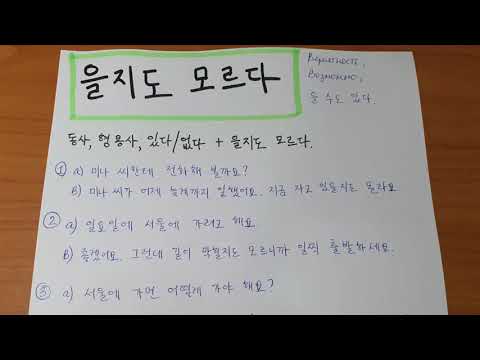 을지도 모르다
Вероятность,
Возможно,
을 수도 있다.
동사, 형용사, 있다/없다 + 을지도 모르다.
① a) 미나 씨한테 전화해 볼까요?
B) 미나 씨가 어제 늦게까지 일했어요. 지금 자고 있을지도 몰라요
② a) 일요일에 서울에 가려고 해요
B) 좋겠어요. 그런데 길이 막힐지도 모르니까 일찍 출발하세요.
③ a) 서울에 가면 어떻게 가야 해요?